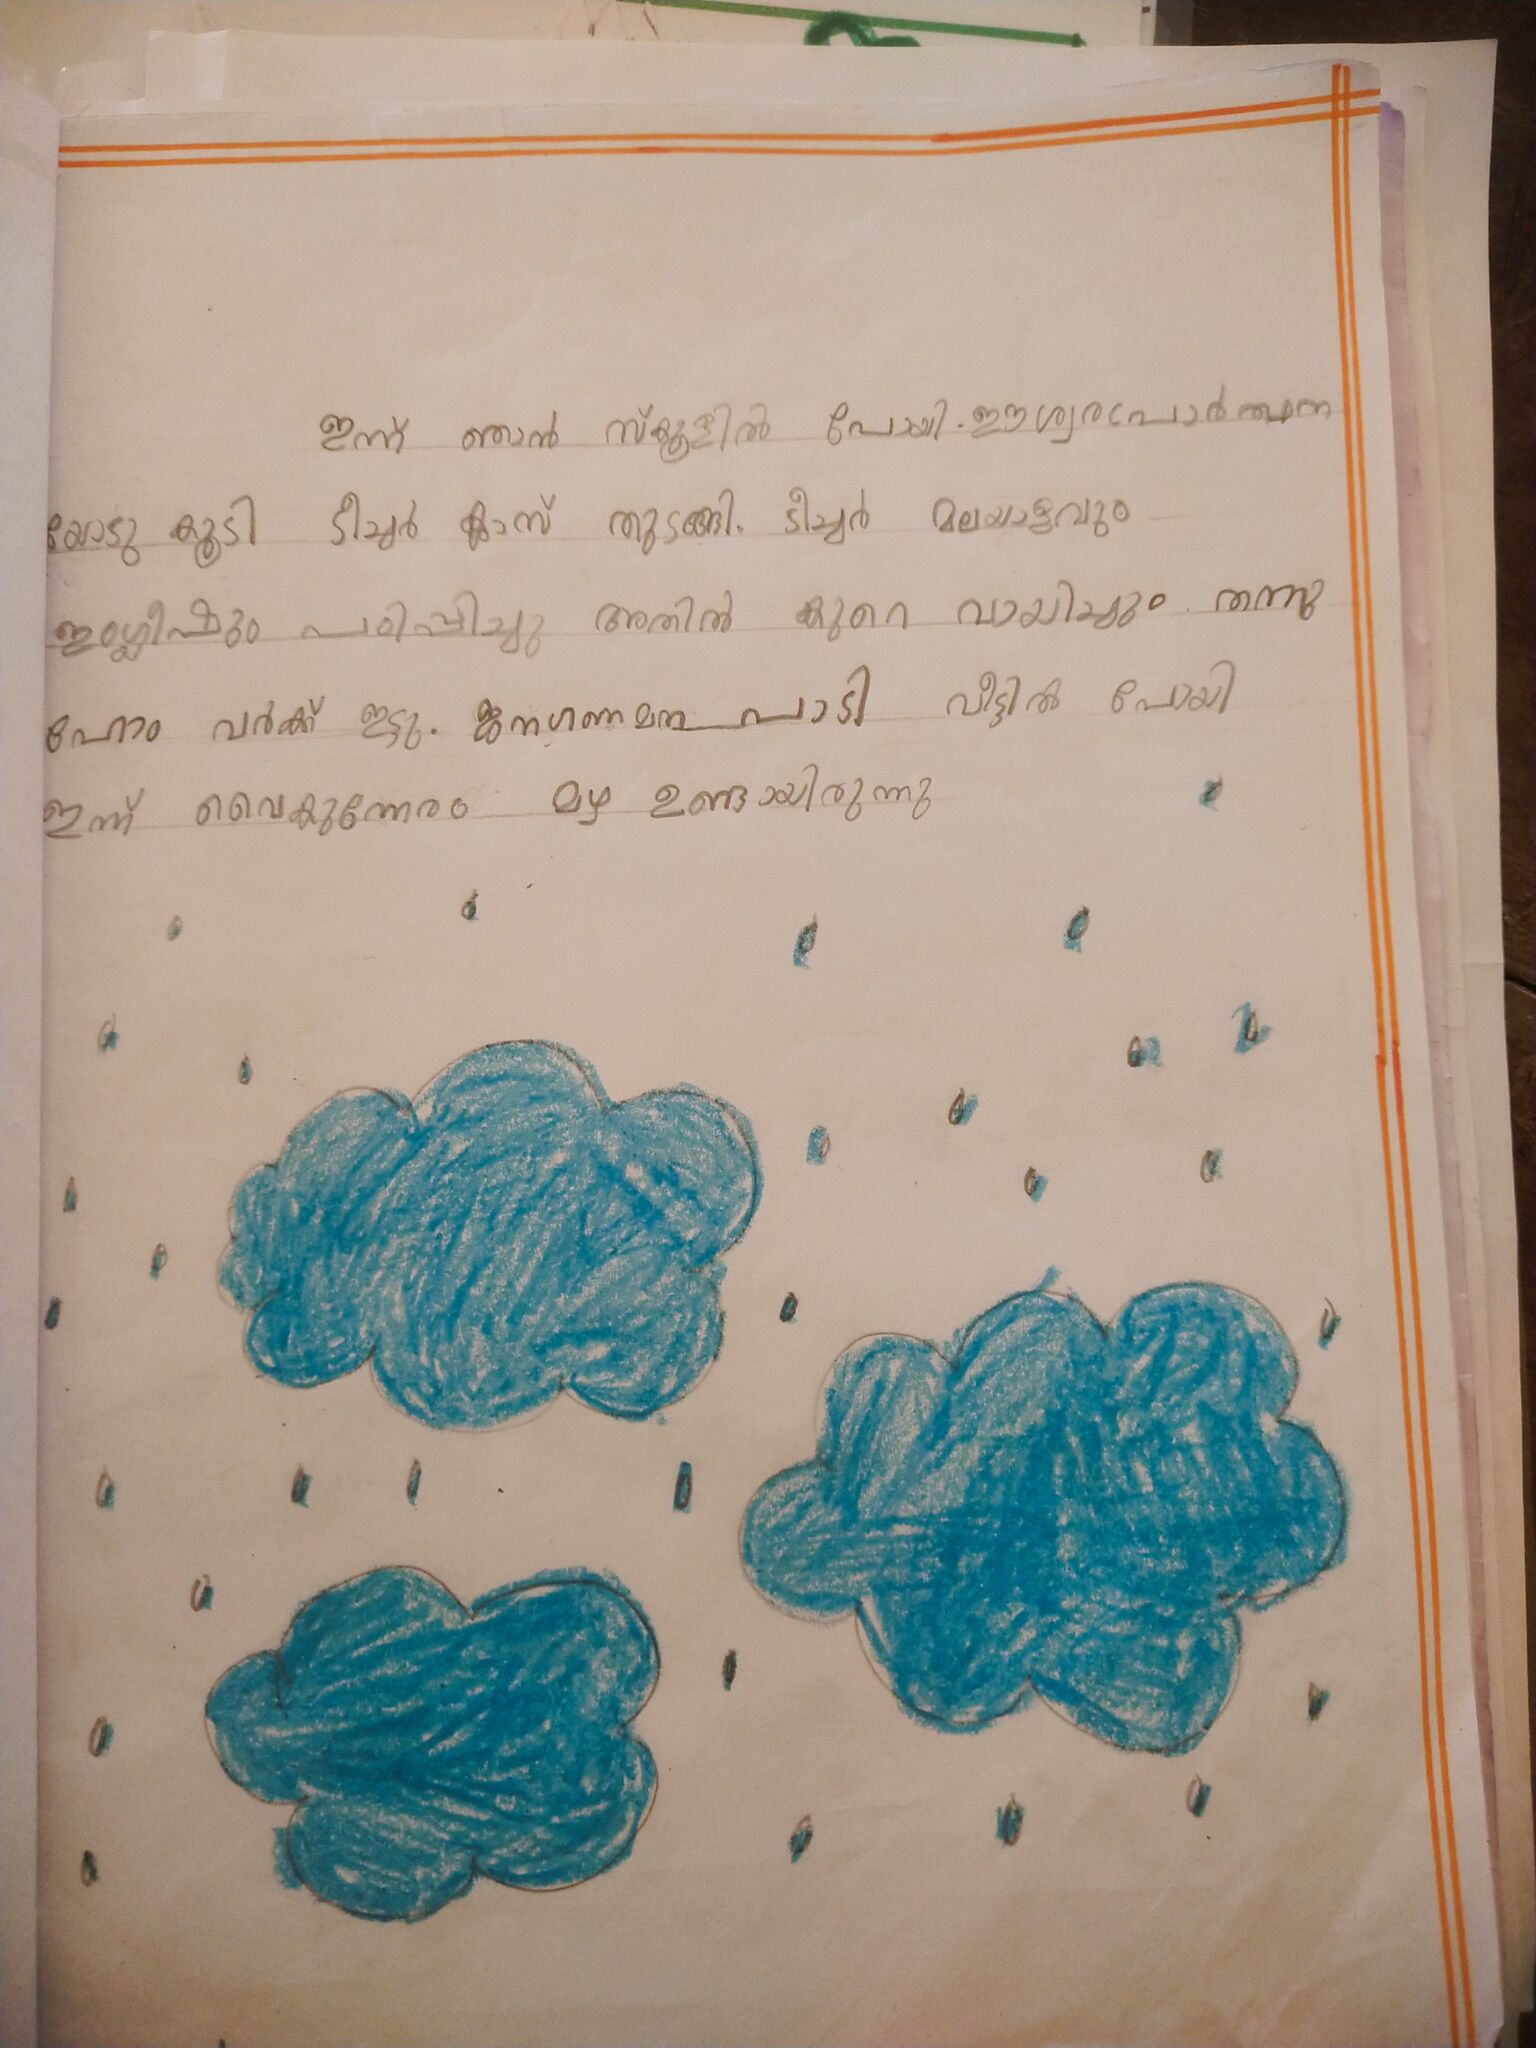 ഇന്ന് ഞാൻ സ്കൂളിൽ പോയി. ഈശ്വരപ്രാർത്ഥന
യോടു കൂടി ടീച്ചർ ക്ലാസ് തുടങ്ങി. ടീച്ചർ മലയാളവും
ഇംഗ്ലീഷും പഠിപ്പിച്ചു അതിൽ കുറെ വായിച്ചും തന്നു
ഹോം വർക്ക് ഇട്ടു. ജനഗണമന പാടി വീട്ടിൽ പോയി
ഇന്ന് വൈകുന്നേരം മഴ ഉണ്ടായിരുന്നു